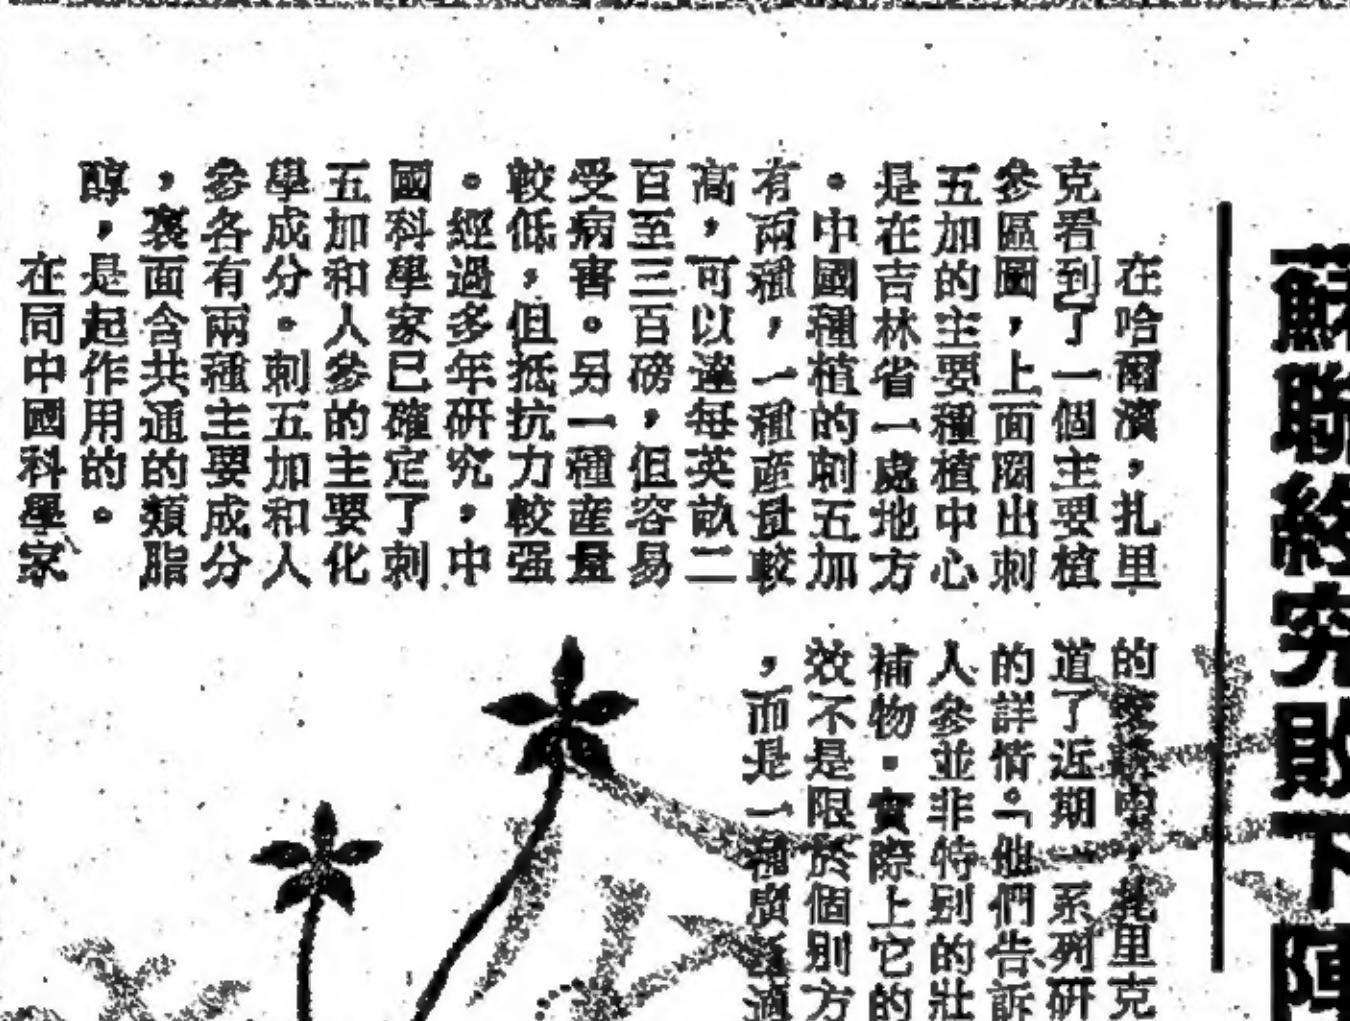 蘇聯終究敗下陣
在哈爾濱，扎里
克看到了一個主要植
參區圖，上面圈出刺
五加的主要種植中心
是在吉林省一處地方
。中國種植的刺五加
有兩種，一種産量較
高，可以達每英畝二
百至三百磅，但容易
受病害。另一種産量
較低，但抵抗力較强
。經過多年研究，中
國科學家已確定了刺
五加和人參的主要化
學成分。刺五加和人
參各有兩種主要成分
，裏面含共通的類脂
醇，是起作用的。
在同中國科學家
的交談中，扎里克
道了近期一系列研
的詳情。「他們告訴
人參並非特别的壯
補物。實際上它的
效不是限於個別方
，而是一種廣泛適